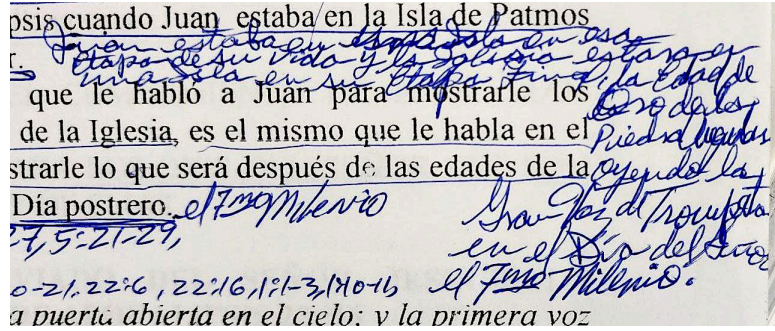 psis cuando Juan estaba en la Isla de Patmos
Juan estaba en esa Isla en esa
r. etapa de su vida y la Iglesia estara en
una Isla en su etapa Final, la Edad de
que le habló a Juan para mostrarle los Oro de la
de la Iglesia, es el mismo que le habla en el Piedra Angular
strarle lo que será después de las edades de la oyendo la
Día postrero. el 7mo Milenio Gran Voz de Trompeta
27, 5:21-29, en el Día del Señor
0-21, 22:6, 22:16, 1:1-3, 1:10-1 el 7mo Milenio.
a puerta abierta en el cielo; y la primera voz